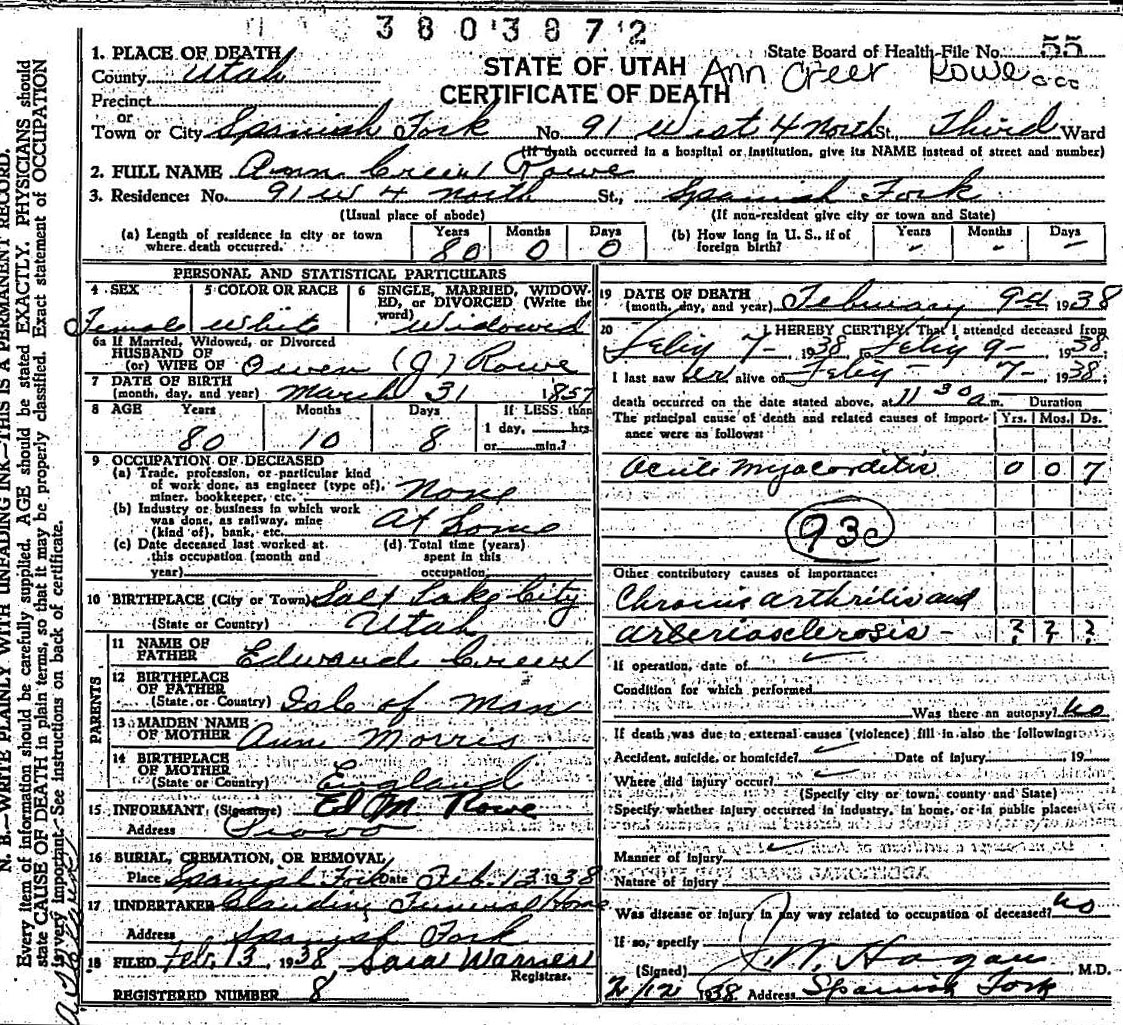 3803872
1. PLACE OF DEATH State Board of Health-File No. 55
County Utah STATE OF UTAH Ann Creer Rowe
Precinct CERTIFICATE OF DEATH
or
Town or City Spanish Fork No. 91 West 4 North St., Third Ward
(If death occurred in a hospital or institution, give its NAME instead of street and number)
2. FULL NAME Ann Creer Rowe
3. Residence: No. 91 W 4 North St., Spanish Fork
(Usual place of abode) (If non-resident give city or town and State)
(a) Length of residence in city or town where death occurred. Years 80 Months 0 Days 0 (b) How long in U. S., if of foreign birth? Years - Months - Days -
PERSONAL AND STATISTICAL PARTICULARS
4 SEX 5 COLOR OR RACE 6 SINGLE, MARRIED, WIDOWED, or DIVORCED (Write the word)
Female White Widowed
6a If Married, Widowed, or Divorced
HUSBAND OF
(or) WIFE OF Owen (J) Rowe
7 DATE OF BIRTH
(month, day, and year) March 31 1857
8 AGE Years Months Days If LESS than
1 day, hrs.
80 10 8 or min.?
9 OCCUPATION OF DECEASED
(a) Trade, profession, or particular kind
of work done, as engineer (type of),
miner, bookkeeper, etc. None
(b) Industry or business in which work
was done, as railway, mine
(kind of), bank, etc. At home
(c) Date deceased last worked at
this occupation (month and
year)
(d) Total time (years)
spent in this
occupation
10 BIRTHPLACE (City or Town) Salt Lake City
(State or Country) Utah
PARENTS
11 NAME OF
FATHER Edward Creer
12 BIRTHPLACE
OF FATHER
(State or Country) Isle of Man
13 MAIDEN NAME
OF MOTHER Ann Morris
14 BIRTHPLACE
OF MOTHER
(State or Country) England
15 INFORMANT (Signature) Ed M. Rowe
Address Provo
16 BURIAL, CREMATION, OR REMOVAL
Place Spanish Fork Date Feb. 13 1938
17 UNDERTAKER Claudin Funeral Home
Address Spanish Fork
18 FILED Feb. 13, 1938 Sarai Warner
Registrar.
REGISTERED NUMBER 8
19 DATE OF DEATH
(month, day, and year) February 9th 1938
20 I HEREBY CERTIFY, That I attended deceased from
Feby 7- 1938 to Feby 9- 1938
I last saw her alive on Feby - 7- 1938;
death occurred on the date stated above, at 11 30 a.m. Duration
The principal cause of death and related causes of importance were as follows: Yrs. Mos. Ds.
Acute myocarditis 0 0 7
93c
Other contributory causes of importance:
Chronic arthritis and
arteriosclerosis - ? ? ?
If operation, date of
Condition for which performed
Was there an autopsy? no
If death was due to external causes (violence) fill in also the following:
Accident, suicide, or homicide? Date of injury 19
Where did injury occur?
(Specify city or town, county and State)
Specify whether injury occurred in industry, in home, or in public place:
Manner of injury
Nature of injury
Was disease or injury in any way related to occupation of deceased? no
If so, specify
(Signed) J. W. Hagan, M.D.
2/12 1938 Address Spanish Fork
N. B.—WRITE PLAINLY WITH UNFADING INK—THIS IS A PERMANENT RECORD.
Every item of information should be carefully supplied. AGE should be stated EXACTLY. PHYSICIANS should
state CAUSE OF DEATH in plain terms, so that it may be properly classified. Exact statement of OCCUPATION
is very important. See instructions on back of certificate.